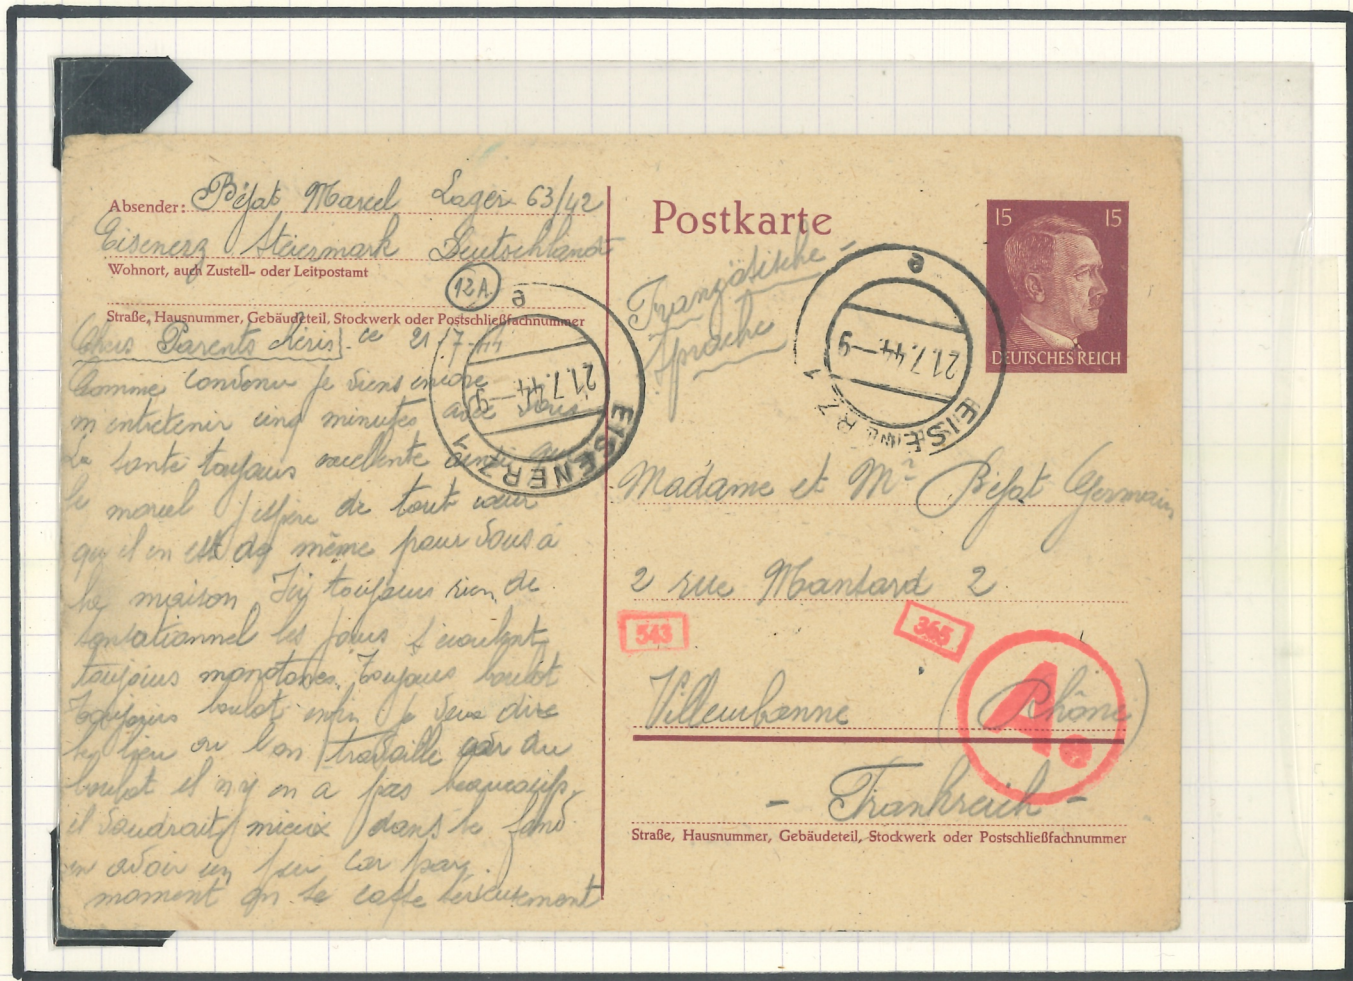 Absender: Béfat Marcel Lager 63/42
Eisenerz Steiermark Deutschland
Wohnort, auch Zustell- oder Leitpostamt
12A
Straße, Hausnummer, Gebäudeteil, Stockwerk oder Postschließfachnummer
Chers Parents chéris ce 21/7-44
Comme convenu je viens encore
m entretenir cinq minutes avec vous
La santé toujours excellente ainsi que
le moral j espère de tout cœur
qu il en est de même pour vous à
la maison Ici toujours rien de
sensationnel les jours s écoulent
toujours monotones Toujours boulot
Toujours boulot enfin je veux dire
le lieu ou l on travaille car du
boulot il n y en a pas beaucoup
il voudrait mieux dans le fond
en avoir un peu car par
moment on se caffe sérieusement
Postkarte
Französische
Sprache
15 15
DEUTSCHES REICH
EISENERZ 1
21.7.44-9
e
EISENERZ 1
21.7.44-9
e
Madame et Mr Béfat Germain
2 rue Mansard 2
543
365
Villeurbanne (Rhône)
A.
- Frankreich -
Straße, Hausnummer, Gebäudeteil, Stockwerk oder Postschließfachnummer